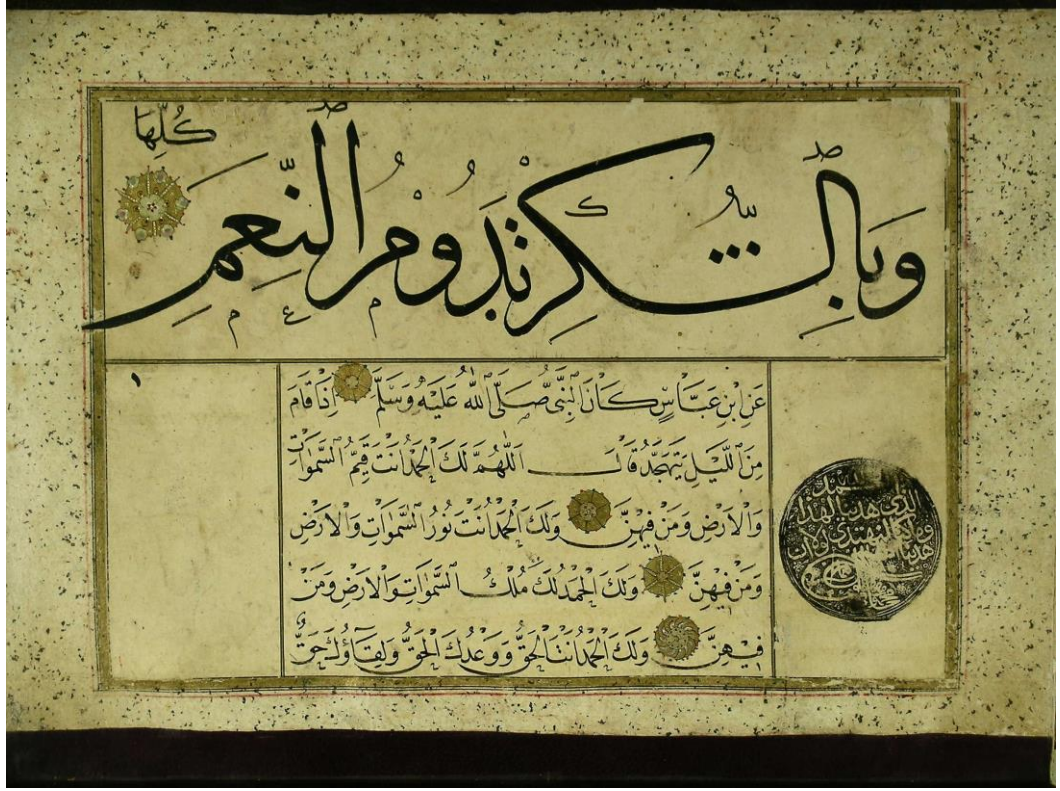 وَبِالشُّكْرِ تَدُومُ النِّعَمِ
كُلِّهَا
عَنِ ابْنِ عَبَّاسٍ كَانَ النَّبِيُّ صَلَّى اللهُ عَلَيْهِ وَسَلَّمَ إِذَا قَامَ
مِنَ اللَّيْلِ يَتَهَجَّدُ قَالَ اَللّٰهُمَّ لَكَ الْحَمْدُ اَنْتَ قَيِّمُ السَّمٰوَاتِ
وَالْاَرْضِ وَمَنْ فِيهِنَّ وَلَكَ الْحَمْدُ اَنْتَ نُورُ السَّمٰوَاتِ وَالْاَرْضِ
وَمَنْ فِيهِنَّ وَلَكَ الْحَمْدُ لَكَ مُلْكُ السَّمٰوَاتِ وَالْاَرْضِ وَمَنْ
فِيهِنَّ وَلَكَ الْحَمْدُ اَنْتَ الْحَقُّ وَوَعْدُكَ الْحَقُّ وَلِقَاؤُكَ حَقٌّ
الذى هدينا لهذا
وما كنا لنهتدى لولا ان
هدينا